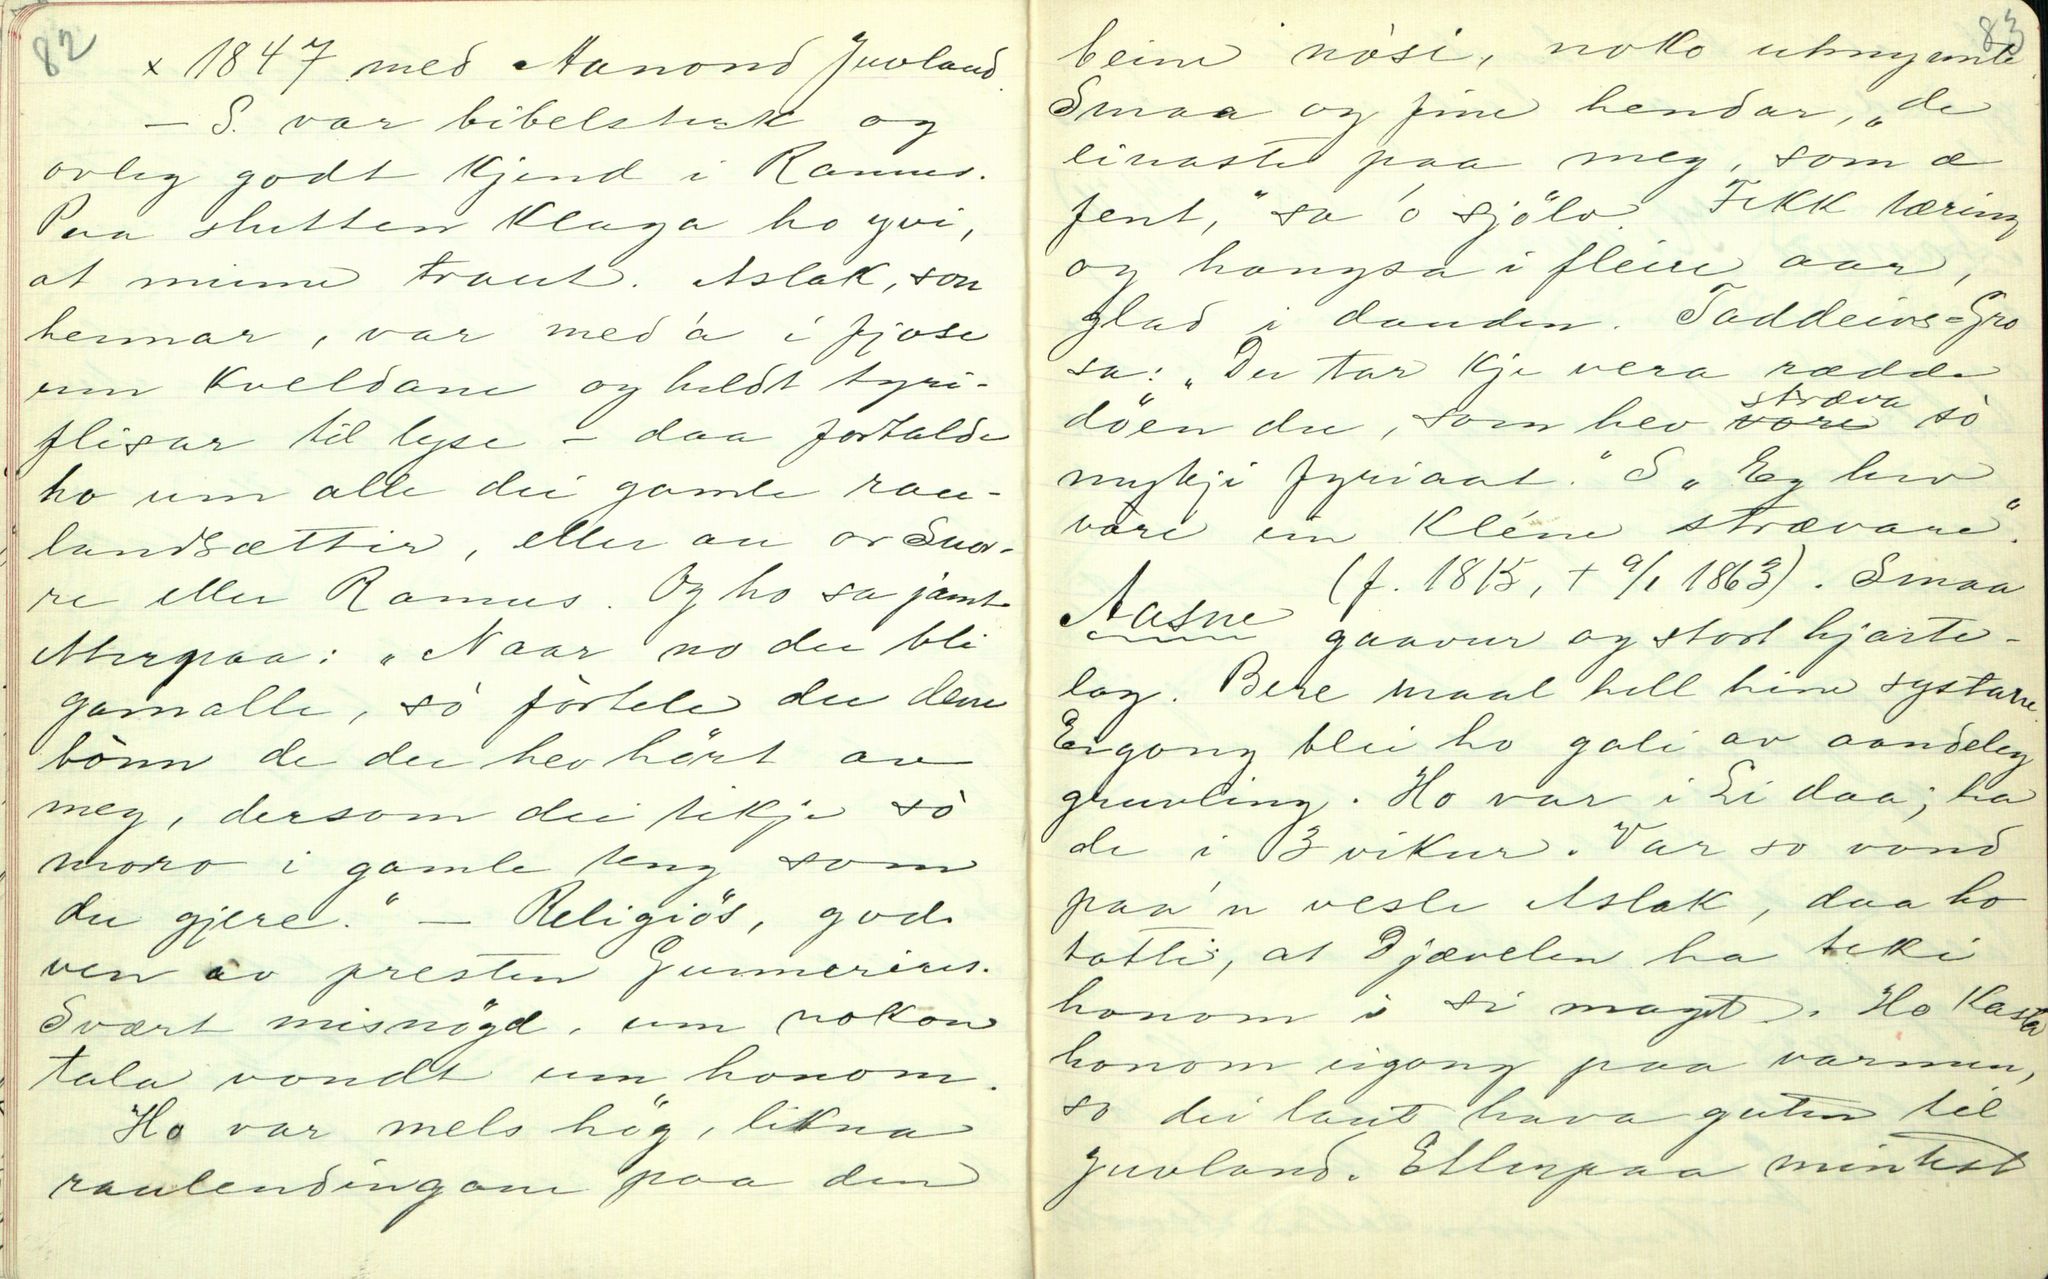 82
x 1847 med Aanond Juvland.
– S. var bibelsterk og
ovleg godt kjend i Ramus.
Paa slutten klaga ho yvi,
at minne traut. Aslak, son
hennar, var med'a i fjose
um kveldane og heldt tyri-
flisar til lyse – daa fortalde
ho um alle dei gamle rau-
landsættir, eller au or Snor-
re eller Ramus. Og ho sa jamt
etterpaa: „Naar no du bli
gamalle, sò fòrtele du dine
bònn de du hev hört av
meg, dersom dei tikje sò
moro i gamle teng som
du gjere." – Religiös, god
ven av presten Gunnerius.
Svært misnögd, um nokon
tala vondt um honom.
Ho var mels hög, likna
raulendingane paa den
83
beine nòsi, noko utnymte.
Smaa og fine hendar, „de
einaste paa meg, som æ
fent," sa 'o sjölv. Fekk tæring
og hangsa i fleire aar,
glad i dauden. Taddeivs-Gro
sa: „Du tar kje vera rædde
döen du, som hev vore stræva sò
mykji fyriaat." S „Eg hev
vòre ein kléne strævare".
(f. 1815, + 9/1 1863). Smaa
Aasne gaavur og stort hjarte-
lag. Bere maal hell hine systarne.
Eigong blei ho gali av aandeleg
gruvling. Ho var i Li daa; ha
de i 3 vikur. Var so vond
paa'n vesle Aslak, daa ho
totti, at Djævelen ha teki
honom i si magt. Ho kasta
honom eigong paa varmen,
so dei laut hava guten til
Juvland. Etterpaa mintest